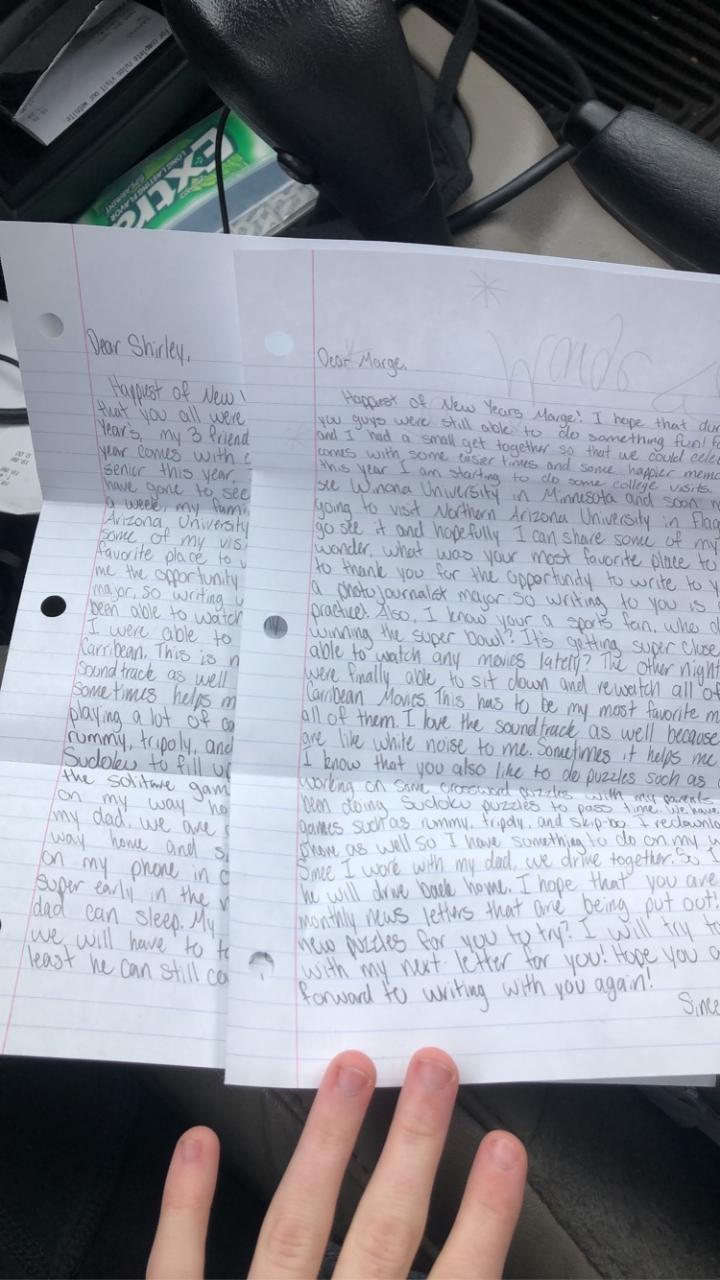 for complete rules visit our website
Extra
LONG LASTING FLAVOR
SPEARMINT
Dear Shirley,
Happiest of New
that you all were
Year's, my 3 friend
year comes with
senior this year,
have gone to see
a week, my fami
Arizona University
some of my vis
favorite place to
me the opportunity
major, so writing
been able to watch
I were able to
Carribean. This is
soundtrack as well
Sometimes helps m
playing a lot of
rummy, tripoly, and
Sudoku to fill up
the solitare gam
on my way ho
my dad, we are
way home and
on my phone in
super early in the
dad can sleep. My
we will have to
least he can still
Dear Marge,
Happiest of New Years Marge! I hope that dur
you guys were still able to do something fun! Fo
and I had a small get together so that we could cele
comes with some easier times and some happier mem
this year I am starting to do some college visits.
see Winona University in Minnesota and soon
going to visit Northern Arizona University in Flag
go see it and hopefully I can share some of my
wonder, what was your most favorite place to
to thank you for the opportunity to write to
a photojournalist major so writing to you is
practice! Also, I know your a sports fan, who
winning the super bowl? It's getting super close
able to watch any movies lately? The other night
were finally able to sit down and rewatch all of
Carribean Movies. This has to be my most favorite m
all of them. I love the soundtrack as well because
are like white noise to me. Sometimes it helps me
I know that you also like to do puzzles such as
working on some crossword puzzles with my parents
been doing Sudoku puzzles to pass time. We have
games such as rummy, tripoly, and skip-bo. I redownlo
phone as well so I have something to do on my
Since I work with my dad, we drive together. So I
he will drive back home. I hope that you are
monthly news letters that are being put out!
new puzzles for you to try? I will try to
with my next letter for you! Hope you
forward to writing with you again!
Since